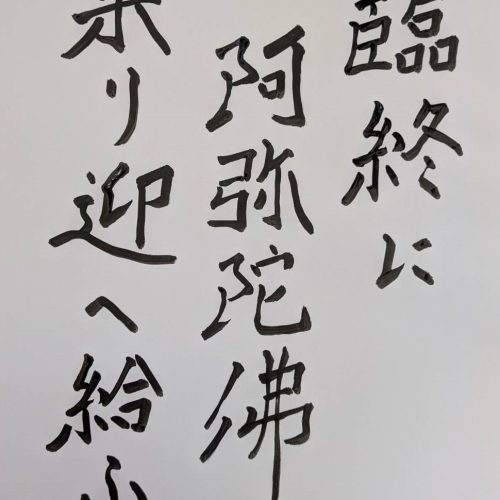 臨終に
阿弥陀佛
来り迎へ給ふ